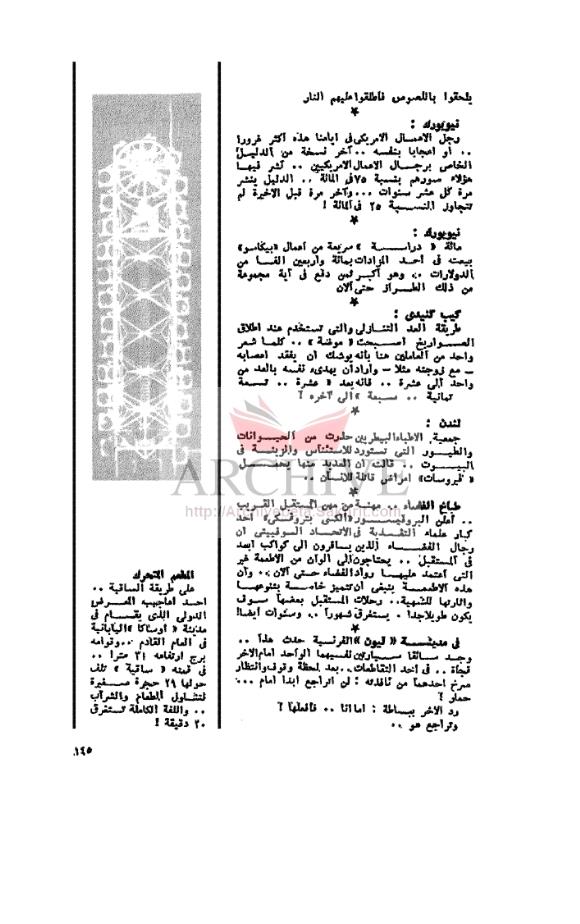 يلحقوا باللصوص فأطلقوا عليهم النار
★
نيويورك :
رجل الاعمال الامريكى فى ايامنا هذه أكثر غرورا
.. أو اعجابا بنفسه .. آخر نسخة من الدليل
الخاص برجال الاعمال الامريكيين .. نشر فيها
هؤلاء صورهم بنسبة ٧٥ فى المائة .. الدليل ينشر
مرة كل عشر سنوات ... وآخر مرة قبل الاخيرة لم
تتجاوز النسبة ٢٥ فى المائة !
★
نيويورك :
مائة « دراسة » سريعة من أعمال «بيكاسو»
بيعت فى أحد المزادات بمائة وأربعين الفا من
الدولارات .. وهو أكبر ثمن دفع فى أية مجموعة
من ذلك الطراز حتى الآن
★
كيب كنيدى :
طريقة العد التنازلى والتى تستخدم عند اطلاق
الصواريخ أصبحت « موضة » .. كلما شعر
واحد من العاملين هنا بأنه يوشك أن يفقد أعصابه
- مع زوجته مثلا - وأراد أن يهدىء نفسه بالعد من
واحد الى عشرة .. فانه يعد « عشرة .. تسعة
ثمانية .. سبعة » الى آخره !
★
لندن :
جمعية الاطباء البيطريين حذرت من الحيوانات
والطيور التى تستورد للاستئناس والزينة فى
البيوت .. قالت ان العديد منها يحمل
« فيروسات » امراض قاتلة للانسان ..
★
طباخ الفضاء .. مهنة من مهن المستقبل القريب
.. أعلن البروفيسور « الكسى بتروفكى » أحد
كبار علماء التغذية فى الاتحاد السوفييتى ان
رجال الفضاء الذين يسافرون الى كواكب أبعد
فى المستقبل .. يحتاجون الى ألوان من الاطعمة غير
التى اعتمد عليها رواد الفضاء حتى الآن .. وان
هذه الاطعمة ينبغى أن تتميز خاصة بتنوعها
واثارتها للشهية .. رحلات المستقبل بعضها سوف
يكون طويلا جدا . يستغرق شهورا .. وسنوات أيضا!
★
فى مدينة « ليون » الفرنسية حدث هذا ..
وجد سائقا سيارتين نفسيهما الواحد أمام الآخر
فجأة .. فى أحد التقاطعات .. بعد لحظة وقوف وانتظار
صرخ أحدهما من نافذته : لن أتراجع أبدا أمام ...
حمار !
رد الآخر ببساطة : اما انا .. فأفعلها !
وتراجع هو ..
المطعم المتحرك
على طريقة الساقية ..
أحد أعاجيب المعرض
الدولى الذى يقام فى
مدينة « أوساكا » اليابانية
فى العام القادم .. وقوامه
برج ارتفاعه ٣١ مترا ..
فى قمته « ساقية » تلف
حولها ٢٩ حجرة صغيرة
لتناول الطعام والشراب
.. واللفة الكاملة تستغرق
٢٠ دقيقة !
١٤٥
ARCHIVE
http://Archivebeta.Sakhrit.com